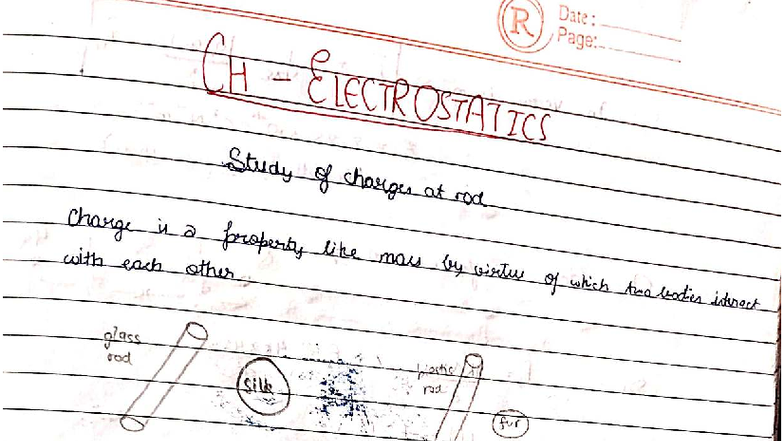 R
Date:
Page:
CH - ELECTROSTATICS
Study of charges at rod
Charge is a property like mass by virtue of which two bodies interact
with each other
glass
rod
silk
plastic
rod
fur